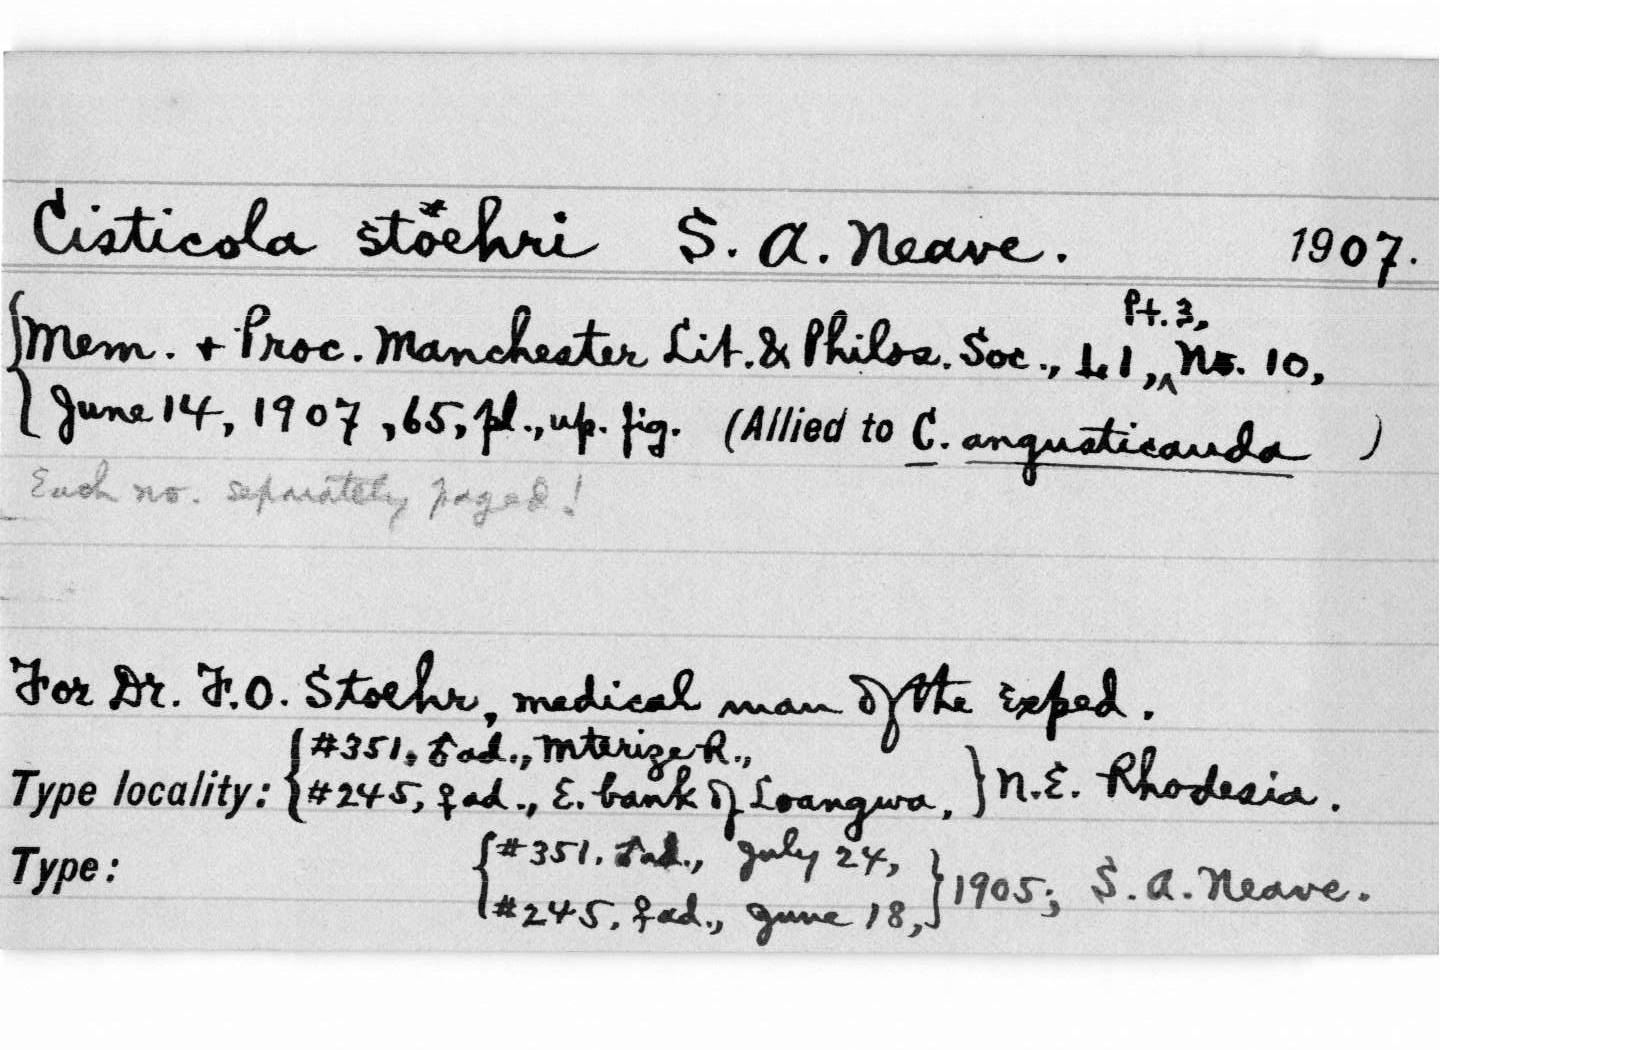 Cisticola stöehri S. A. Neave. 1907.
Pt. 3,
Mem. + Proc. Manchester Lit. & Philos. Soc., LI, ^ No. 10,
June 14, 1907, 65, pl., up. fig. (Allied to C. angusticauda )
Each no. separately paged!
For Dr. F.O. Stoehr, medical man of the Exped.
#351, ♂ ad., Mterize R.,
Type locality: #245, ♀ ad., E. bank of Loangwa, N.E. Rhodesia.
#351, ♂ ad., July 24,
Type: 1905; S. A. Neave.
#245, ♀ ad., June 18,